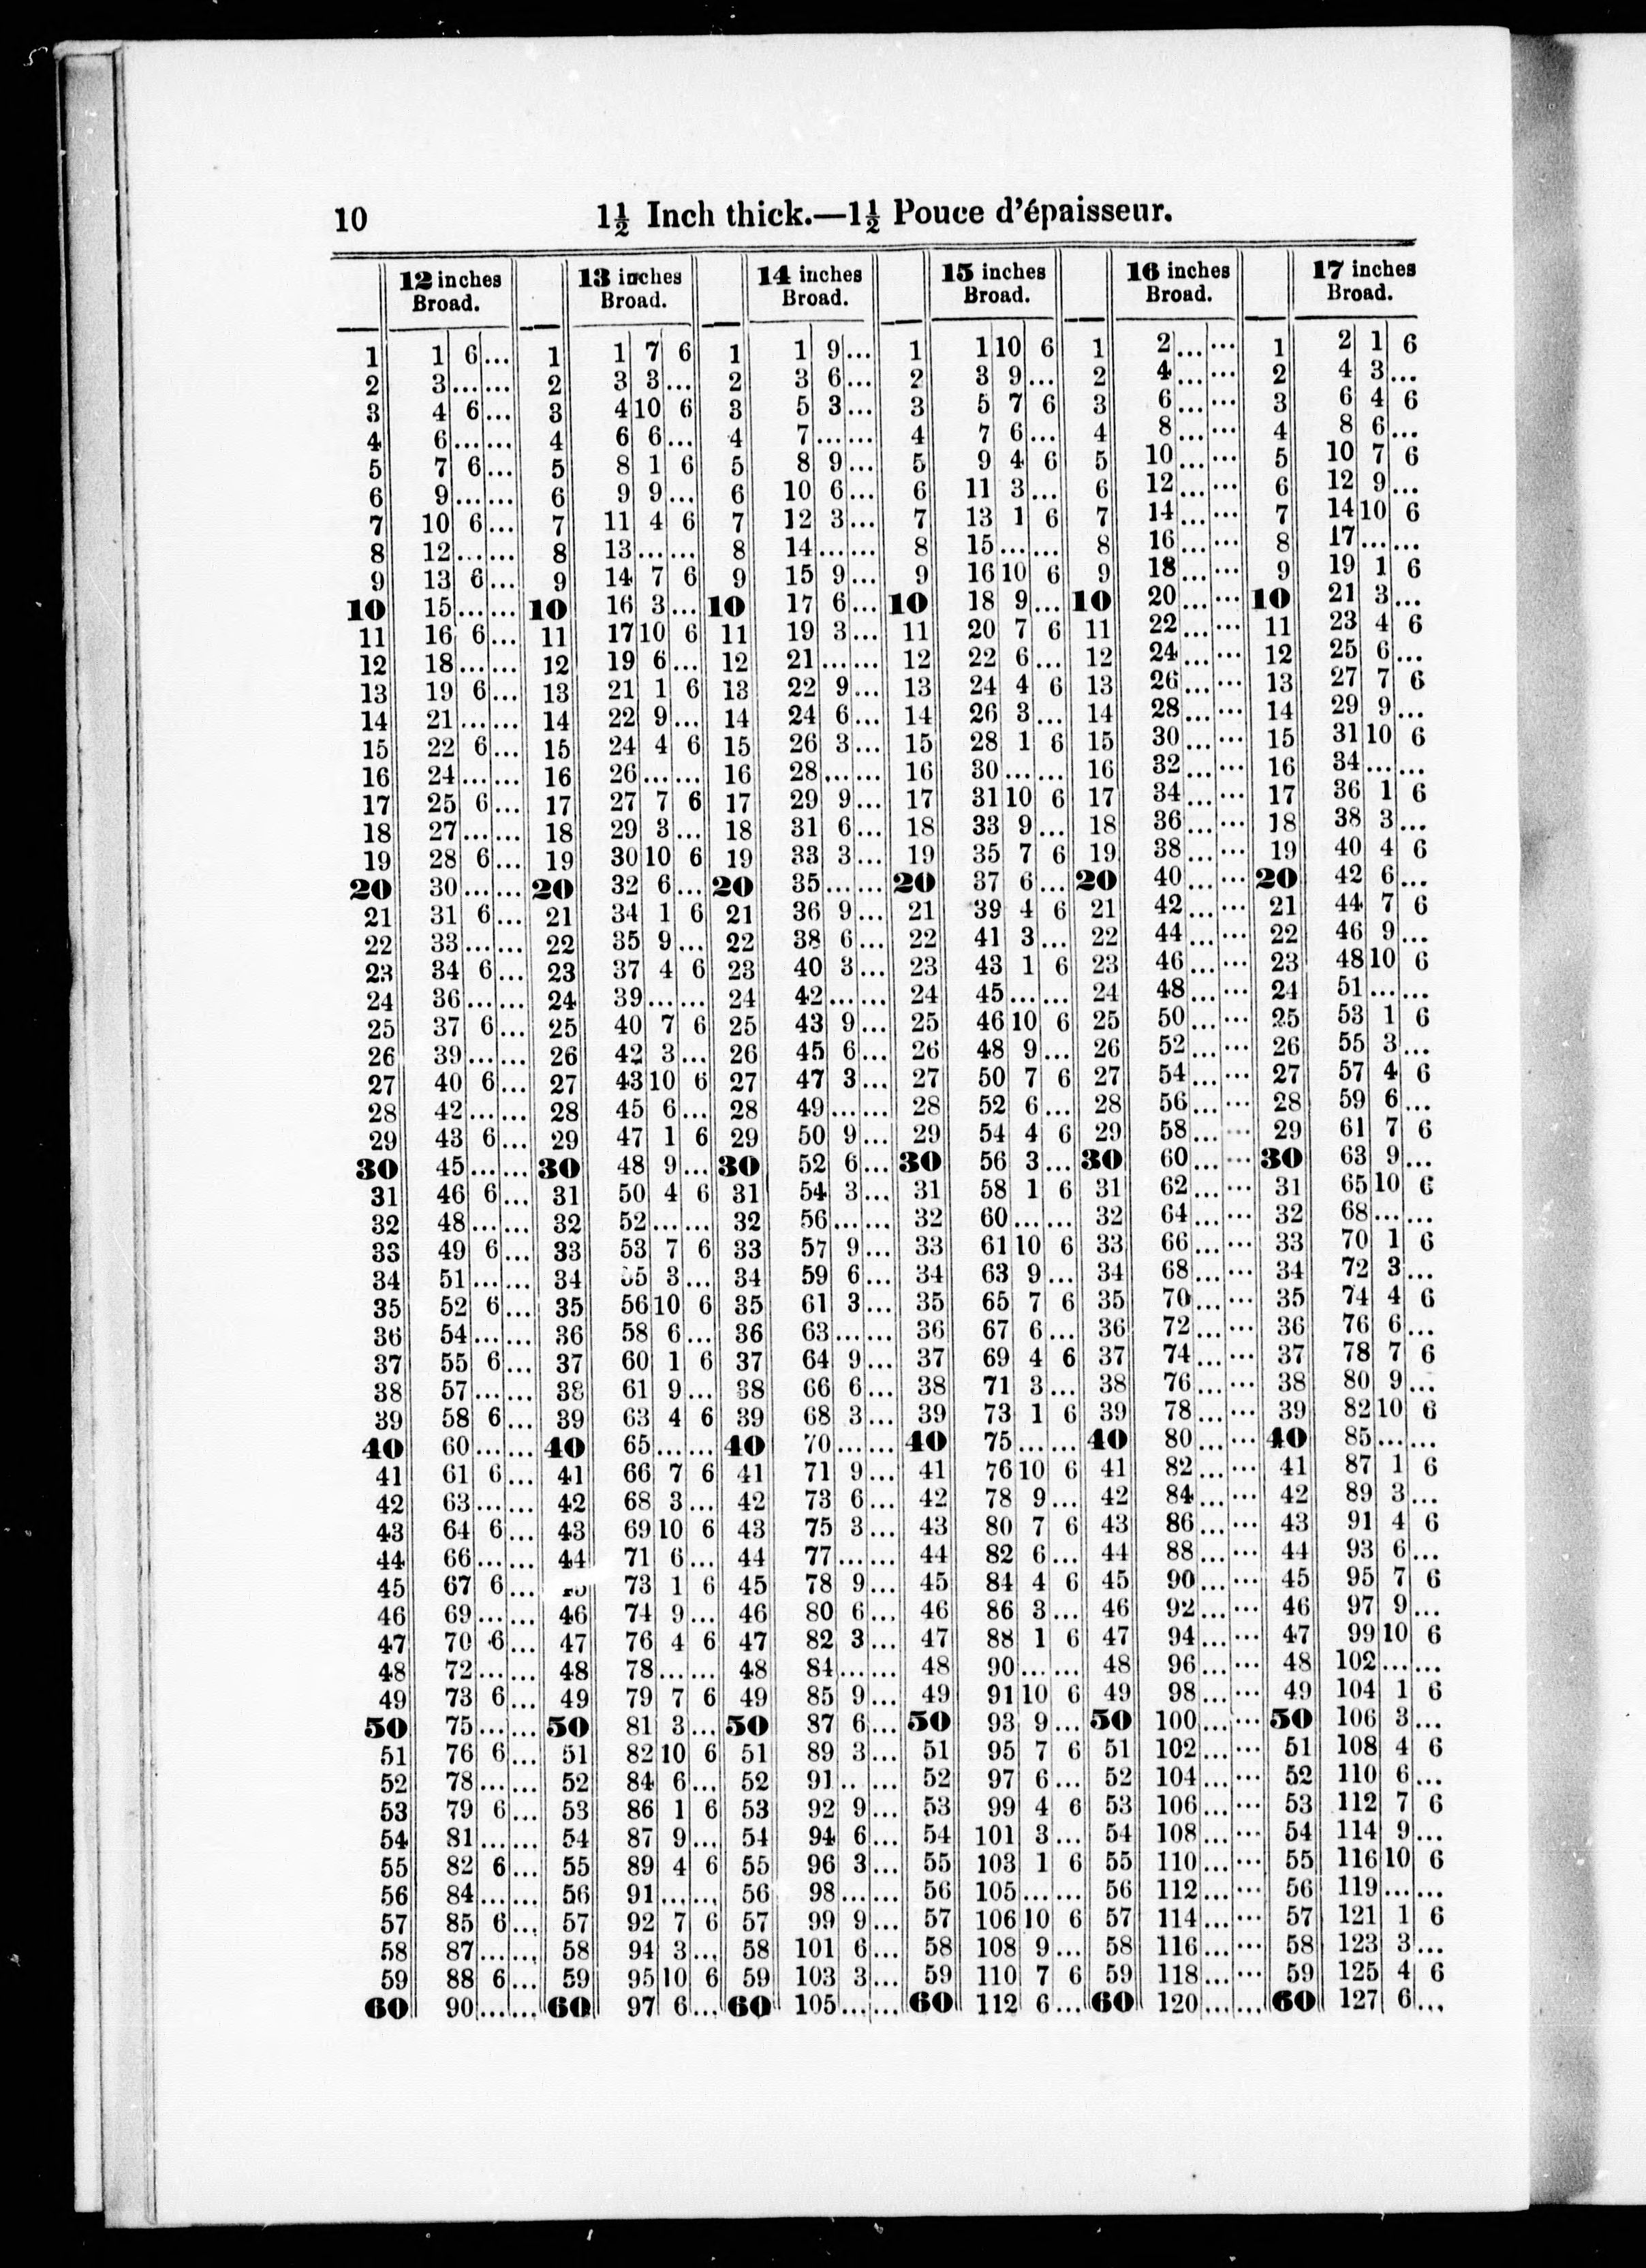 10 1½ Inch thick.—1½ Pouce d'épaisseur.
12 inches Broad. 13 inches Broad. 14 inches Broad. 15 inches Broad. 16 inches Broad. 17 inches Broad.
1 1 6... 1 1 7 6 1 1 9... 1 1 10 6 1 2...... 1 2 1 6
2 3...... 2 3 3... 2 3 6... 2 3 9... 2 4...... 2 4 3...
3 4 6... 3 4 10 6 3 5 3... 3 5 7 6 3 6...... 3 6 4 6
4 6...... 4 6 6... 4 7...... 4 7 6... 4 8...... 4 8 6...
5 7 6... 5 8 1 6 5 8 9... 5 9 4 6 5 10...... 5 10 7 6
6 9...... 6 9 9... 6 10 6... 6 11 3... 6 12...... 6 12 9...
7 10 6... 7 11 4 6 7 12 3... 7 13 1 6 7 14...... 7 14 10 6
8 12...... 8 13...... 8 14...... 8 15...... 8 16...... 8 17......
9 13 6... 9 14 7 6 9 15 9... 9 16 10 6 9 18...... 9 19 1 6
10 15...... 10 16 3... 10 17 6... 10 18 9... 10 20...... 10 21 3...
11 16 6... 11 17 10 6 11 19 3... 11 20 7 6 11 22...... 11 23 4 6
12 18...... 12 19 6... 12 21...... 12 22 6... 12 24...... 12 25 6...
13 19 6... 13 21 1 6 13 22 9... 13 24 4 6 13 26...... 13 27 7 6
14 21...... 14 22 9... 14 24 6... 14 26 3... 14 28...... 14 29 9...
15 22 6... 15 24 4 6 15 26 3... 15 28 1 6 15 30...... 15 31 10 6
16 24...... 16 26...... 16 28...... 16 30...... 16 32...... 16 34......
17 25 6... 17 27 7 6 17 29 9... 17 31 10 6 17 34...... 17 36 1 6
18 27...... 18 29 3... 18 31 6... 18 33 9... 18 36...... 18 38 3...
19 28 6... 19 30 10 6 19 33 3... 19 35 7 6 19 38...... 19 40 4 6
20 30...... 20 32 6... 20 35...... 20 37 6... 20 40...... 20 42 6...
21 31 6... 21 34 1 6 21 36 9... 21 39 4 6 21 42...... 21 44 7 6
22 33...... 22 35 9... 22 38 6... 22 41 3... 22 44...... 22 46 9...
23 34 6... 23 37 4 6 23 40 3... 23 43 1 6 23 46...... 23 48 10 6
24 36...... 24 39...... 24 42...... 24 45...... 24 48...... 24 51......
25 37 6... 25 40 7 6 25 43 9... 25 46 10 6 25 50...... 25 53 1 6
26 39...... 26 42 3... 26 45 6... 26 48 9... 26 52...... 26 55 3...
27 40 6... 27 43 10 6 27 47 3... 27 50 7 6 27 54...... 27 57 4 6
28 42...... 28 45 6... 28 49...... 28 52 6... 28 56...... 28 59 6...
29 43 6... 29 47 1 6 29 50 9... 29 54 4 6 29 58...... 29 61 7 6
30 45...... 30 48 9... 30 52 6... 30 56 3... 30 60...... 30 63 9...
31 46 6... 31 50 4 6 31 54 3... 31 58 1 6 31 62...... 31 65 10 6
32 48...... 32 52...... 32 56...... 32 60...... 32 64...... 32 68......
33 49 6... 33 53 7 6 33 57 9... 33 61 10 6 33 66...... 33 70 1 6
34 51...... 34 55 3... 34 59 6... 34 63 9... 34 68...... 34 72 3...
35 52 6... 35 56 10 6 35 61 3... 35 65 7 6 35 70...... 35 74 4 6
36 54...... 36 58 6... 36 63...... 36 67 6... 36 72...... 36 76 6...
37 55 6... 37 60 1 6 37 64 9... 37 69 4 6 37 74...... 37 78 7 6
38 57...... 38 61 9... 38 66 6... 38 71 3... 38 76...... 38 80 9...
39 58 6... 39 63 4 6 39 68 3... 39 73 1 6 39 78...... 39 82 10 6
40 60...... 40 65...... 40 70...... 40 75...... 40 80...... 40 85......
41 61 6... 41 66 7 6 41 71 9... 41 76 10 6 41 82...... 41 87 1 6
42 63...... 42 68 3... 42 73 6... 42 78 9... 42 84...... 42 89 3...
43 64 6... 43 69 10 6 43 75 3... 43 80 7 6 43 86...... 43 91 4 6
44 66...... 44 71 6... 44 77...... 44 82 6... 44 88...... 44 93 6...
45 67 6... 73 1 6 45 78 9... 45 84 4 6 45 90...... 45 95 7 6
46 69...... 46 74 9... 46 80 6... 46 86 3... 46 92...... 46 97 9...
47 70 6... 47 76 4 6 47 82 3... 47 88 1 6 47 94...... 47 99 10 6
48 72...... 48 78...... 48 84...... 48 90...... 48 96...... 48 102......
49 73 6... 49 79 7 6 49 85 9... 49 91 10 6 49 98...... 49 104 1 6
50 75...... 50 81 3... 50 87 6... 50 93 9... 50 100...... 50 106 3...
51 76 6... 51 82 10 6 51 89 3... 51 95 7 6 51 102...... 51 108 4 6
52 78...... 52 84 6... 52 91..... 52 97 6... 52 104...... 52 110 6...
53 79 6... 53 86 1 6 53 92 9... 53 99 4 6 53 106...... 53 112 7 6
54 81...... 54 87 9... 54 94 6... 54 101 3... 54 108...... 54 114 9...
55 82 6... 55 89 4 6 55 96 3... 55 103 1 6 55 110...... 55 116 10 6
56 84...... 56 91...... 56 98...... 56 105...... 56 112...... 56 119......
57 85 6... 57 92 7 6 57 99 9... 57 106 10 6 57 114...... 57 121 1 6
58 87...... 58 94 3... 58 101 6... 58 108 9... 58 116...... 58 123 3...
59 88 6... 59 95 10 6 59 103 3... 59 110 7 6 59 118...... 59 125 4 6
60 90...... 60 97 6... 60 105...... 60 112 6... 60 120...... 60 127 6...